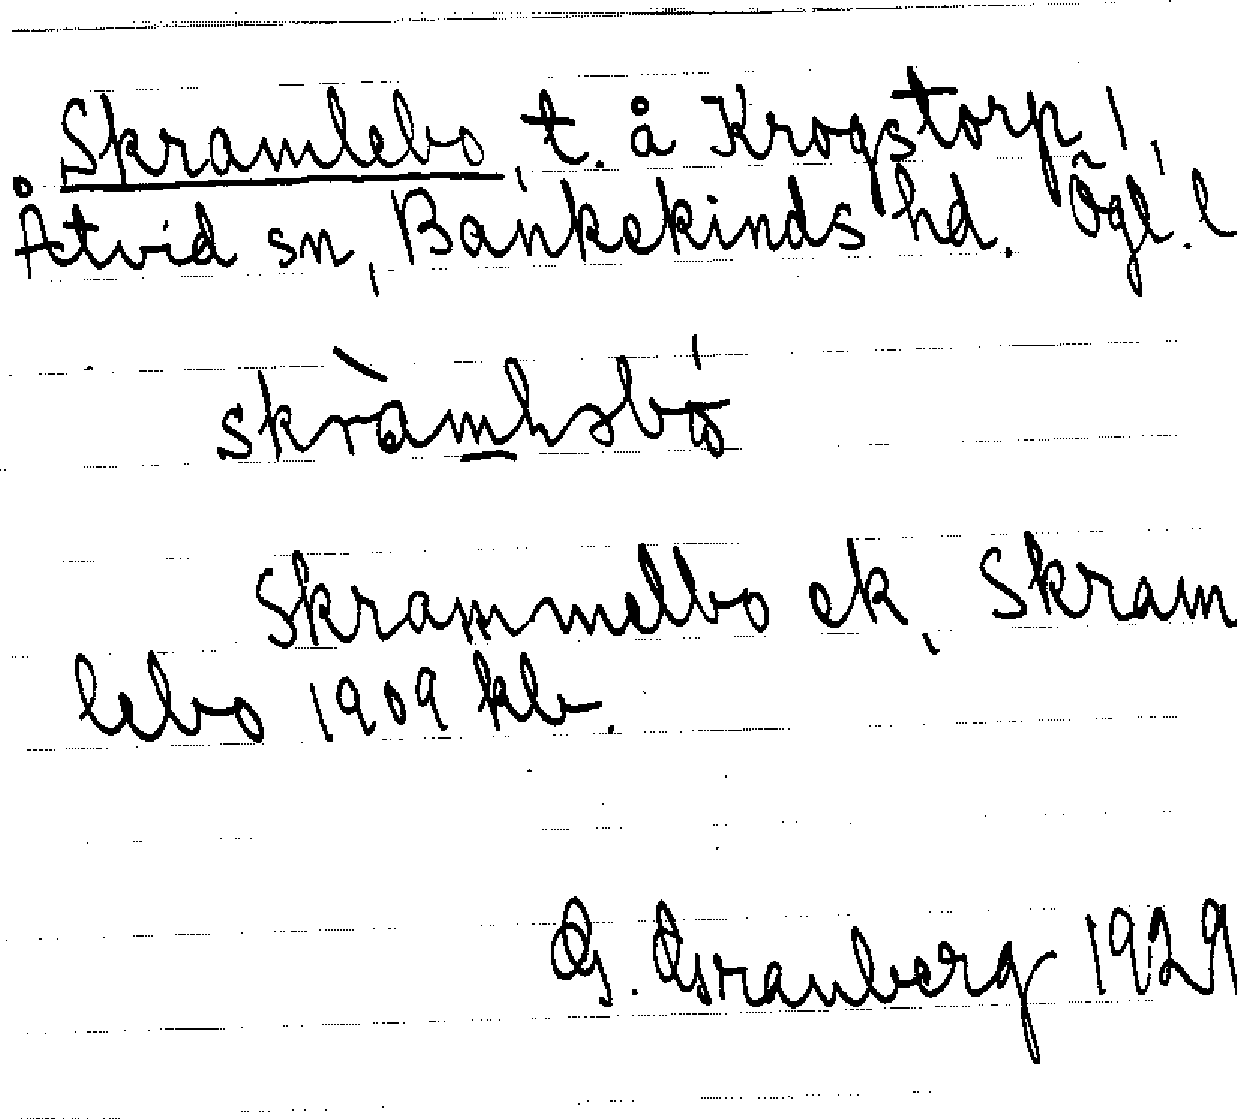 Skramlebo, t. å Krogstorp,
Åtvid sn, Bankekinds hd. Ögl. l
Skrammelbo ek, Skram
lebo 1909 kb.
G. Granberg 1929